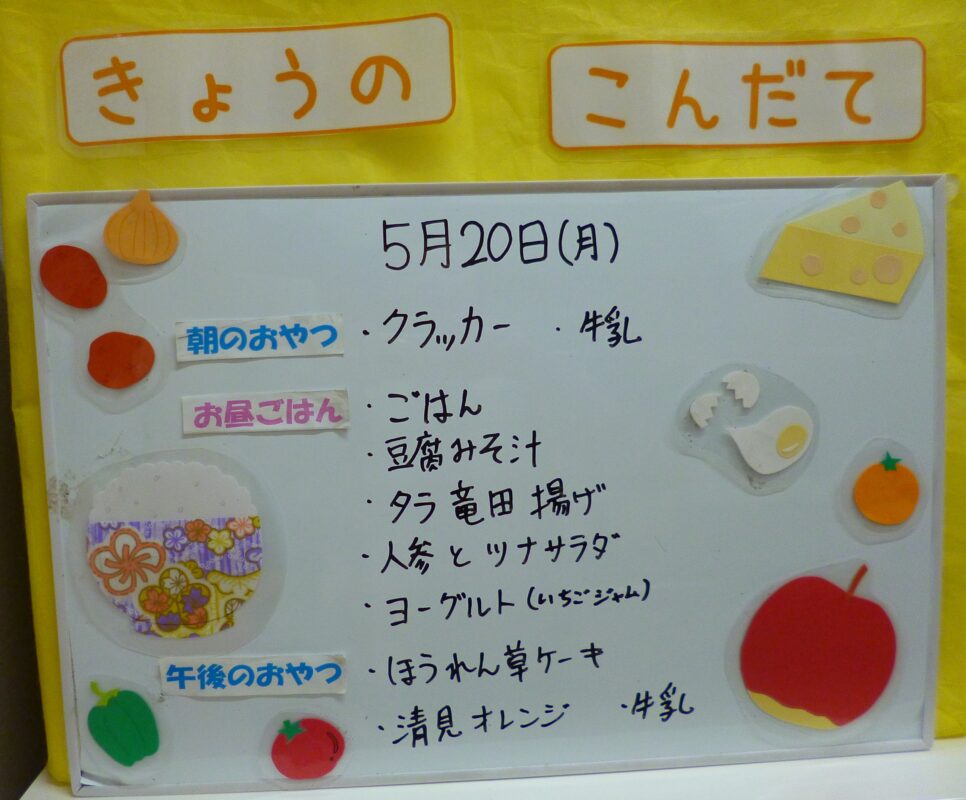 きょうの こんだて
5月20日(月)
朝のおやつ ・クラッカー ・牛乳
お昼ごはん ・ごはん
・豆腐みそ汁
・タラ竜田揚げ
・人参とツナサラダ
・ヨーグルト(いちごジャム)
午後のおやつ ・ほうれん草ケーキ
・清見オレンジ ・牛乳